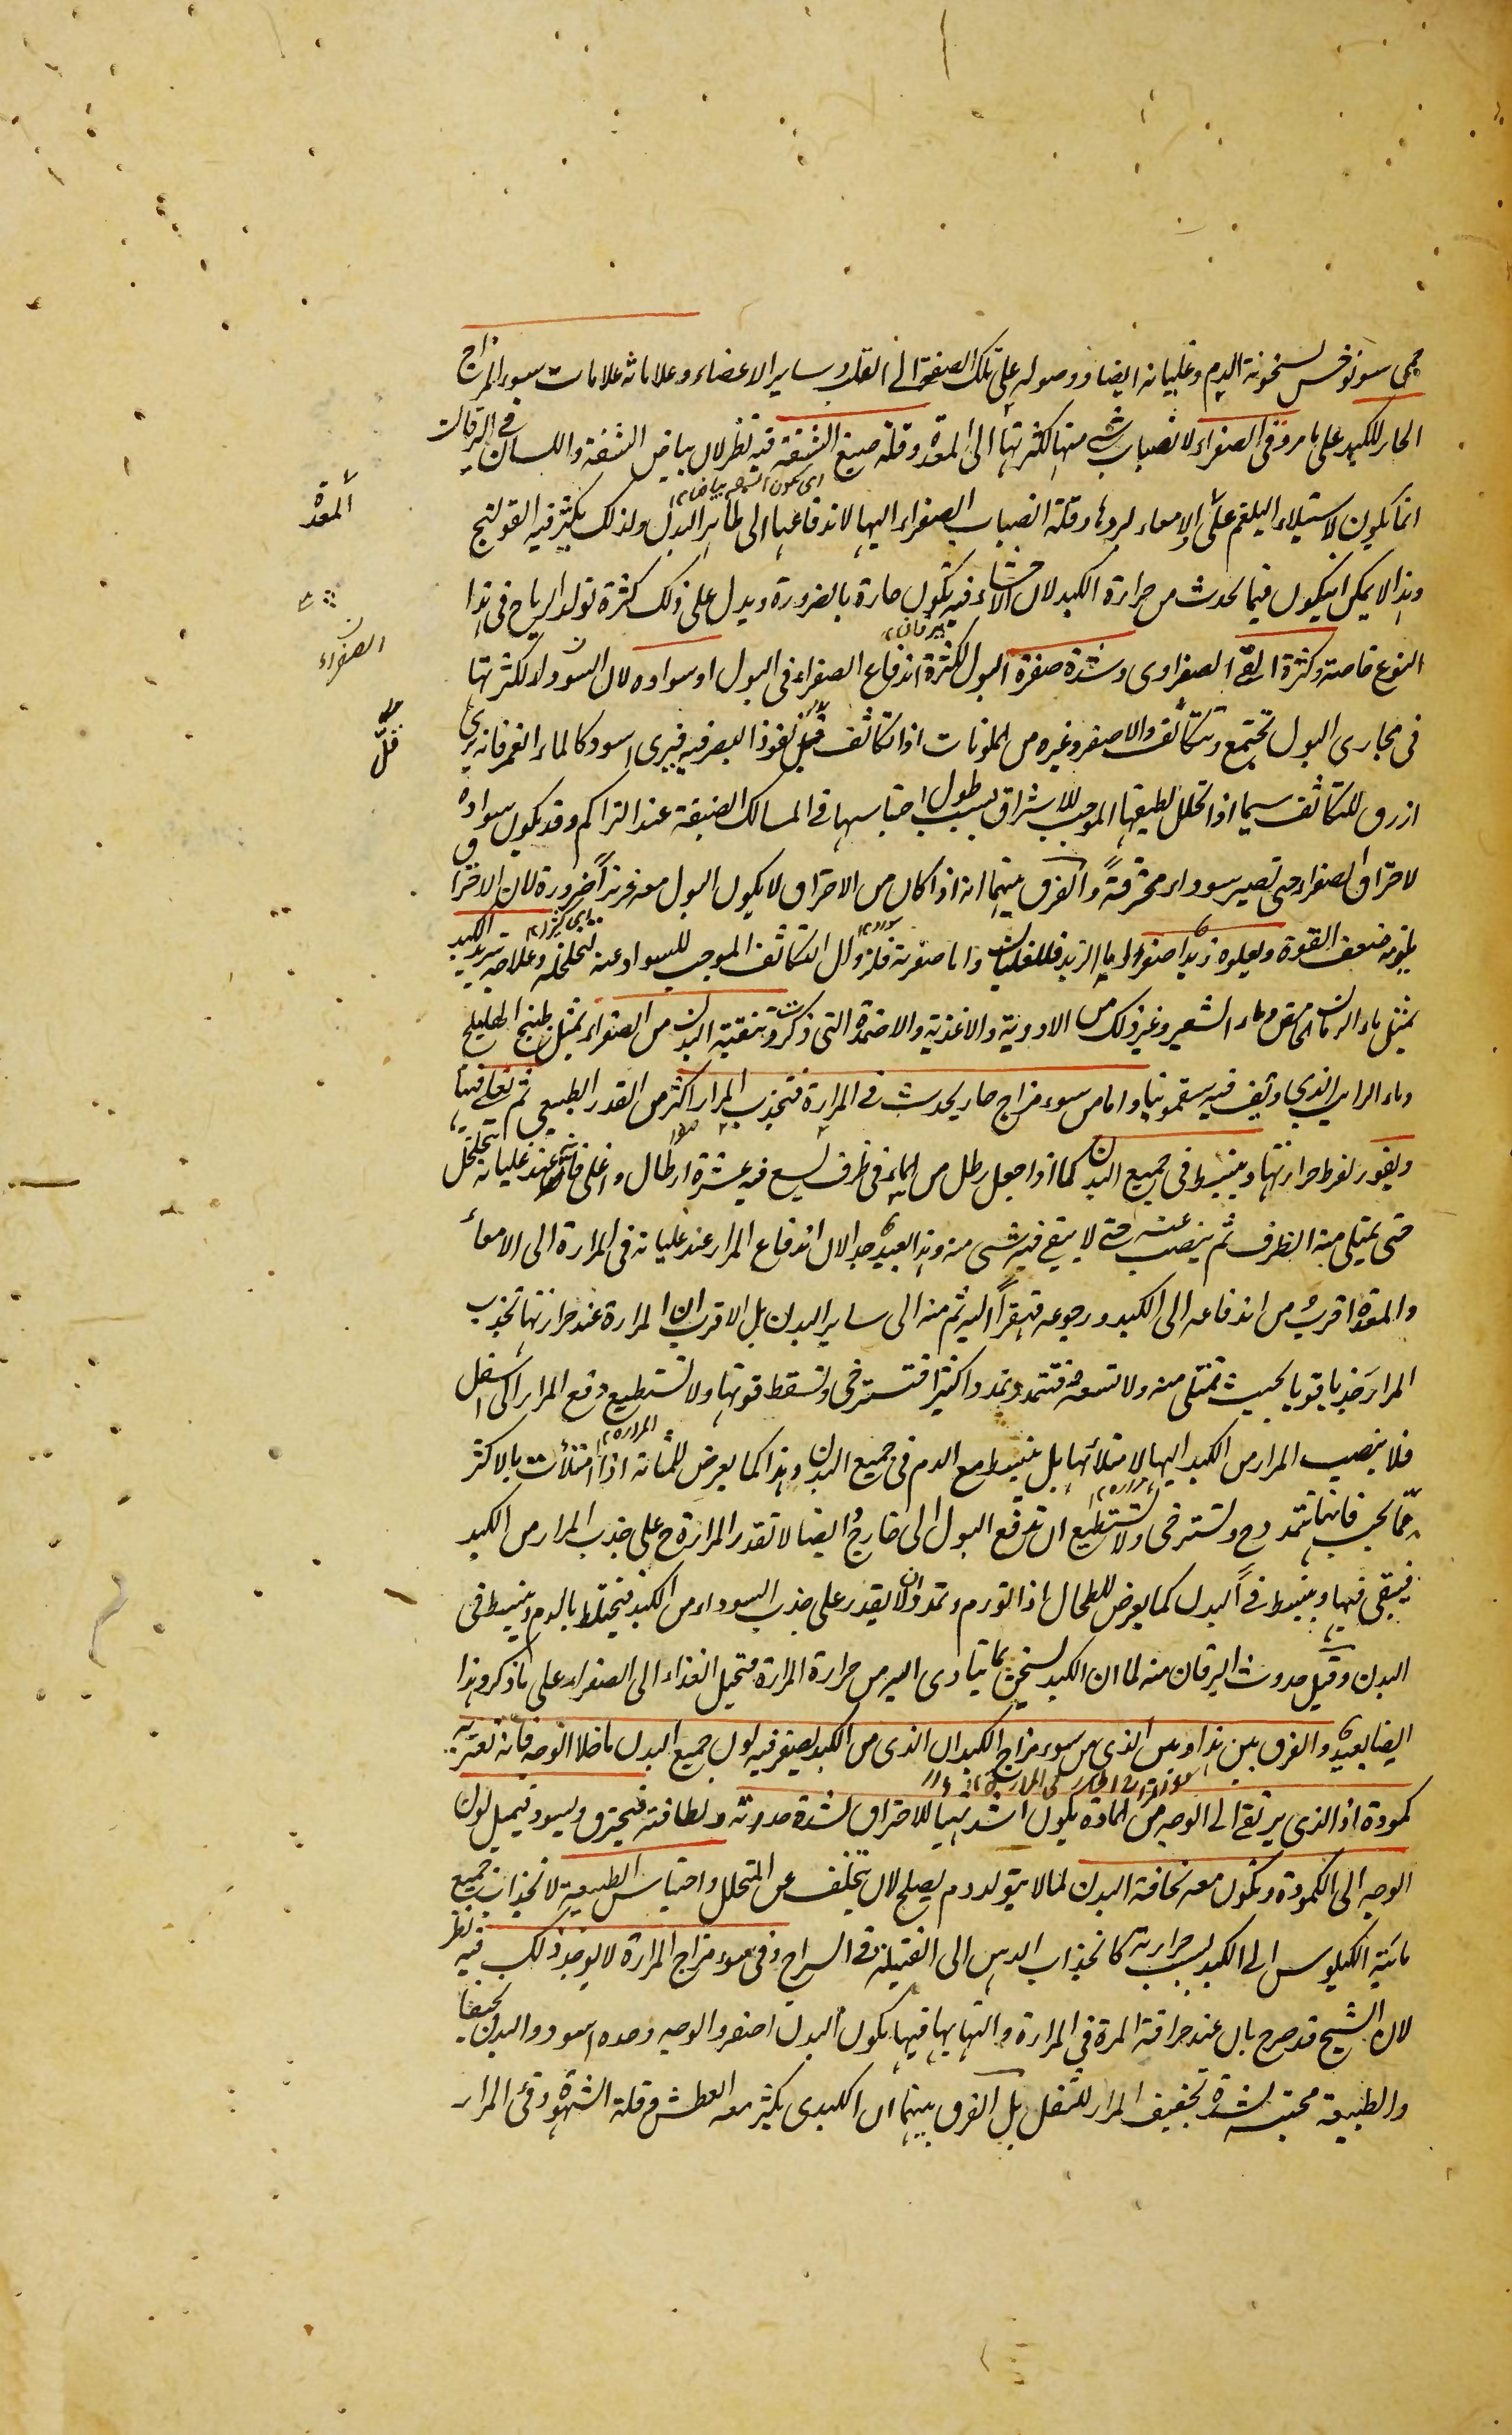 حمى سونوخس لسخونة الدم وغليانه ايضا ووصوله على تلك الصفة الى القلب وساير الاعضاء وعلاماته علامات سوء المزاج
الحار للكبد على ما مر وقئ الصفراء لانصباب شئ منها لكثرتها الى المعدة وقلة صبغ الشفة فيه نظر لان بياض الشفة واللسان فى اليرقان
انما يكون لاستيلاء البلغم على الامعاء لبردها وقلة انصباب الصفراء اليها لاندفاعها الى ظاهر البدن ولذلك يكثر فيه القولنج
وهذا لا يمكن ان يكون فيما يحدث من حرارة الكبد لان الاحشاء فيه تكون حارة بالضرورة ويدل على ذلك كثرة تولد الرياح فى هذا
النوع خاصة وكثرة القئ الصفراوى وشدة صفرة البول لكثرة اندفاع الصفراء فى البول او سواده لان الصفراء لكثرتها
يرقان
فى مجارى البول تجتمع وتتكاثف والاصفر وغيره من الملونات اذا تكاثف قل نفوذ البصر فيه فيرى اسود كالماء الغمر فانه يرى
ازرق للتكاثف سيما اذا تحلل لطيفها الموجب للاشراق بسبب طول احتباسها فى المسالك الضيقة عند التراكم وقد يكون سواده
لاحتراق الصفراء حتى تصير سوداء محترقة والفرق بينهما انه اذا كان من الاحتراق لا يكون البول معه غزيرا ضرورة لان الاحتراق
يلزمه ضعف القوة ويعلوه زبد اصفر اما الزبد فللغليان واما صفرته فلزوال التكاثف الموجب للسواد عنه لتخلخله وعلاجه تبريد الكبد
بمثل ماء الرمان الحامض وماء الشعير وغير ذلك من الادوية والاغذية والاضمدة التى ذكرت وتنقية البدن من الصفراء بمثل طبيخ الهليلج
وماء الرايب الذى اديف فيه سقمونيا واما من سوء مزاج حار يحدث فى المرارة فتجذب المرار اكثر من القدر الطبيعى ثم تغلى فيها
ويفور لفرط حرارتها وينبسط فى جميع البدن كما اذا جعل رطل من الماء فى ظرف يسع فيه عشرة ارطال واغلى فانه عند غليانه يتخلخل
حتى يمتلى منه الظرف ثم ينصب عنه حتى لا يبقى فيه شئ منه وهذا بعيد جدا لان اندفاع المرار عند غليانه فى المرارة الى الامعاء
والمعدة اقرب من اندفاعه الى الكبد ورجوعه قهقرا اليه ثم منه الى ساير البدن بل الاقرب ان المرارة عند حرارتها تجذب
المرار جذبا قويا بحيث تمتلى منه ولا تسعه فتتمدد تمددا كثيرا فتسترخى وتسقط قوتها ولا تستطيع دفع المرار الى اسفل
فلا ينصب المرار من الكبد اليها لامتلائها بل ينبسط مع الدم فى جميع البدن وهذا كما يعرض للمثانة اذا امتلأت بالاكثر
المرارة
مما يجب فانها تتمدد ح وتسترخى ولا تستطيع ان تدفع البول الى خارج وايضا لا تقدر المرارة ح على جذب المرار من الكبد
فيبقى فيها وينبسط فى البدن كما يعرض للطحال اذا تورم وتمدد ان لا يقدر على جذب السوداء من الكبد فيختلط بالدم وينبسط فى
البدن وقيل حدوث اليرقان منه لما ان الكبد تسخن بما يتادى اليه من حرارة المرارة فتحيل الغذاء الى الصفراء على ما ذكر وهذا
ايضا بعيد والفرق بين هذا وبين الذى من سوء مزاج الكبد ان الذى من الكبد يصفر فيه لون جميع البدن ما خلا الوجه فانه تعتريه
كمودة اذ الذى يرتقى الى الوجه من المادة يكون اشد تهيأ للاحتراق لشدة حدته ولطافته فيحترق ويسود فيميل لون
الوجه الى الكمودة ويكون معه نحافة البدن لما لا يتولد دم يصلح لان يتخلف عن المتحلل واحتباس الطبيعة لانجذاب جميع
مائية الكيلوس الى الكبد لسبب حرارته كانجذاب الدهن الى الفتيلة فى السراج وفى سوء مزاج المرارة لا يوجد ذلك فيه نظر
لان الشيخ قد صرح بان عند حرافة المرة فى المرارة والتهابها فيها يكون البدن اصفر والوجه وحده اسود والبدن نحيفا
والطبيعة محتبسة لشدة تجفيف المرار للثفل بل الفرق بينهما ان الكبدى يكثر معه العطش وقلة الشهوة وقئ المرار
المعدة
الصفراء
قلّ